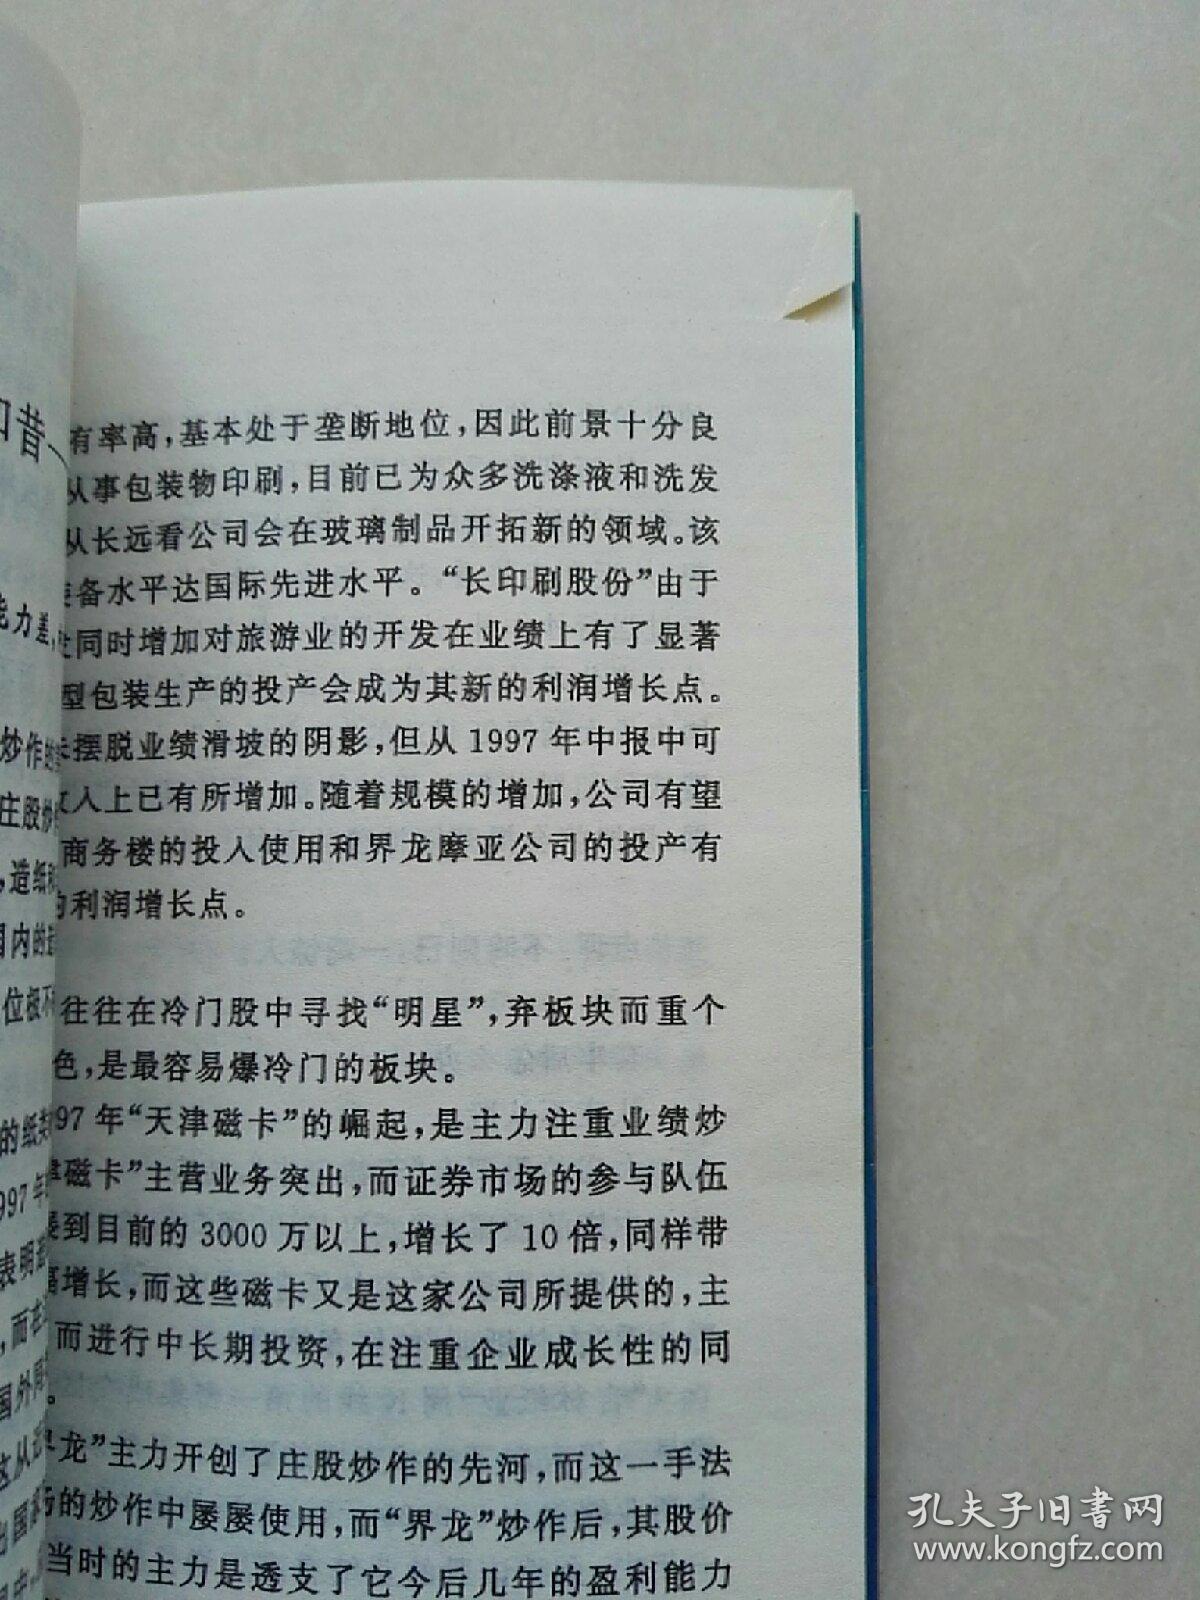 有率高，基本处于垄断地位，因此前景十分良
从事包装物印刷，目前已为众多洗涤液和洗发
从长远看公司会在玻璃制品开拓新的领域。该
备水平达国际先进水平。“长印刷股份”由于
同时增加对旅游业的开发在业绩上有了显著
型包装生产的投产会成为其新的利润增长点。
摆脱业绩滑坡的阴影，但从1997年中报中可
人上已有所增加。随着规模的增加，公司有望
商务楼的投入使用和界龙摩亚公司的投产有
利润增长点。
往往在冷门股中寻找“明星”，弃板块而重个
色，是最容易爆冷门的板块。
97年“天津磁卡”的崛起，是主力注重业绩炒
磁卡”主营业务突出，而证券市场的参与队伍
到目前的3000万以上，增长了10倍，同样带
高增长，而这些磁卡又是这家公司所提供的，主
而进行中长期投资，在注重企业成长性的同
龙”主力开创了庄股炒作的先河，而这一手法
的炒作中屡屡使用，而“界龙”炒作后，其股价
当时的主力是透支了它今后几年的盈利能力
昔
能力差，
炒作
庄股炒
，造纸
国内的
位极不
的纸类
997年
表明
，而在
国外同
这从
出国
孔夫子旧书网
www.kongfz.com